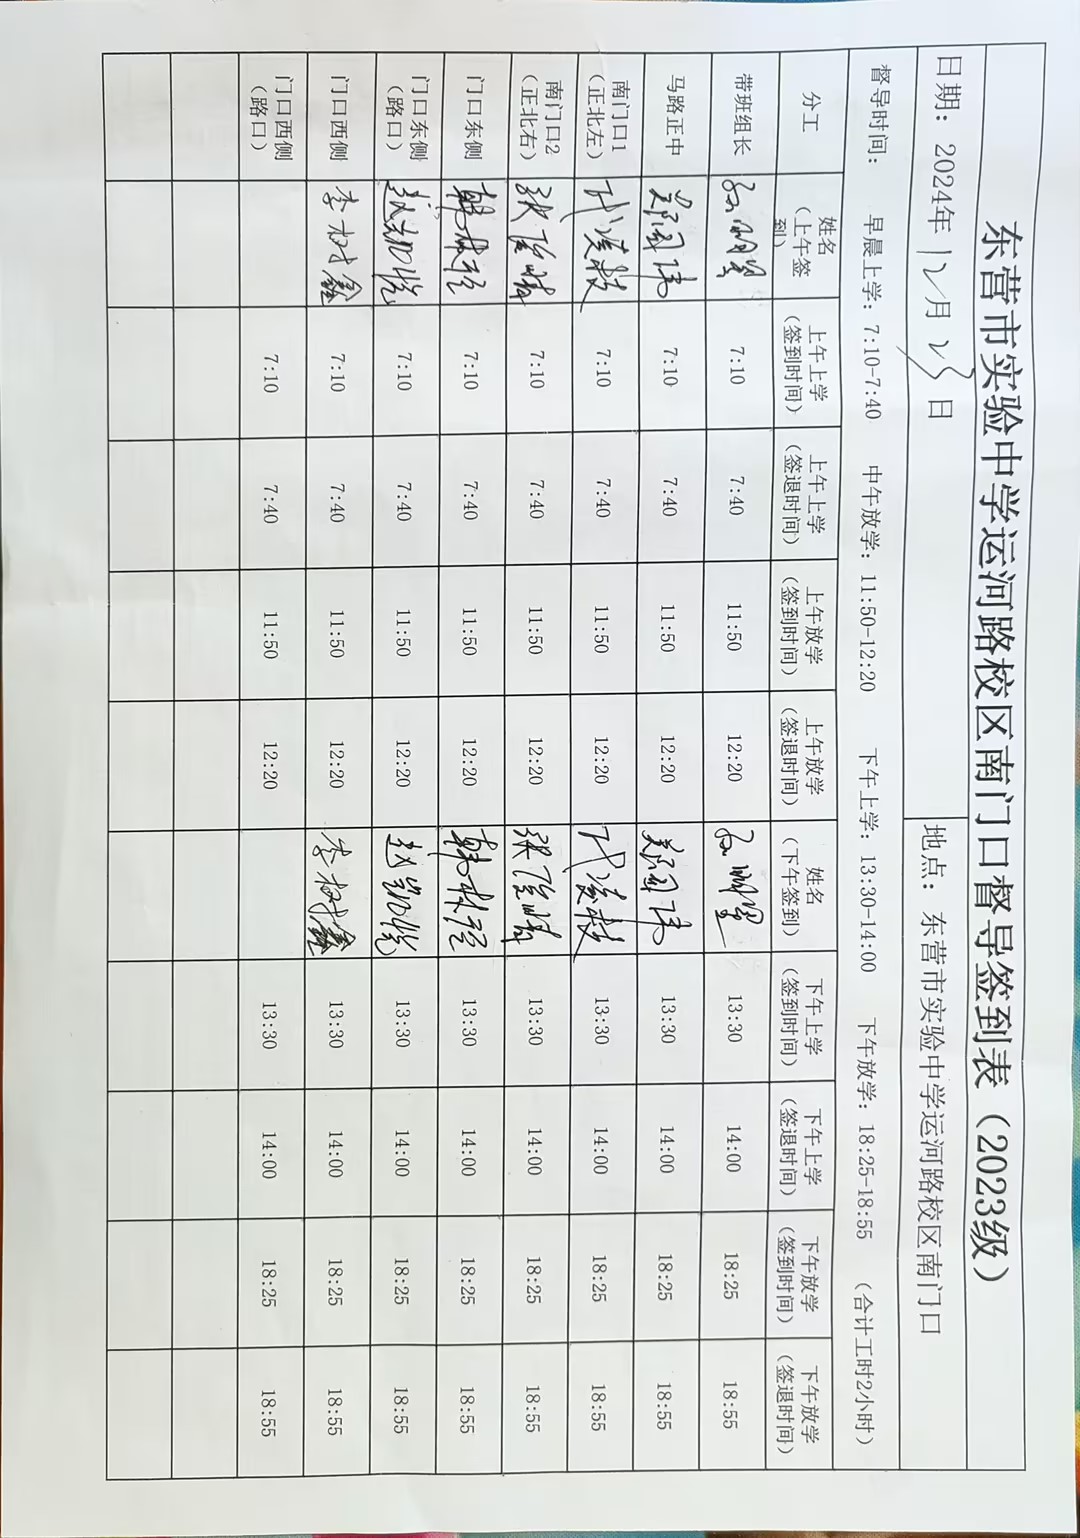 东营市实验中学运河路校区南门口督导签到表（2023级）
日期：2024年12月23日 地点：东营市实验中学运河路校区南门口
督导时间： 早晨上学：7:10-7:40 中午放学：11:50-12:20 下午上学：13:30-14:00 下午放学：18:25-18:55 （合计工时2小时）
分工 姓名（上午签到） 上午上学（签到时间） 上午上学（签退时间） 上午放学（签到时间） 上午放学（签退时间） 姓名（下午签到） 下午上学（签到时间） 下午上学（签退时间） 下午放学（签到时间） 下午放学（签退时间）
带班组长 7:10 7:40 11:50 12:20 13:30 14:00 18:25 18:55
马路正中 7:10 7:40 11:50 12:20 13:30 14:00 18:25 18:55
南门口1（正北左） 7:10 7:40 11:50 12:20 13:30 14:00 18:25 18:55
南门口2（正北右） 7:10 7:40 11:50 12:20 13:30 14:00 18:25 18:55
门口东侧 7:10 7:40 11:50 12:20 13:30 14:00 18:25 18:55
门口东侧（路口） 7:10 7:40 11:50 12:20 13:30 14:00 18:25 18:55
门口西侧 李树鑫 7:10 7:40 11:50 12:20 李树鑫 13:30 14:00 18:25 18:55
门口西侧（路口） 7:10 7:40 11:50 12:20 13:30 14:00 18:25 18:55